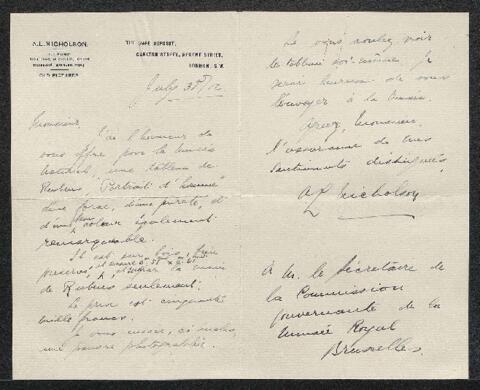 A.L. NICHOLSON.
THE SAFE DEPOSIT,
CARLTON STREET, REGENT STREET,
LONDON, S.W.
OLD MASTERS
July
Monsieur,
J'ai l'honneur de
vous offrir pour le musée
une tableau de
Rubens, "Portrait d'homme"
d'une force, d'une pureté, et
d'une couleur également
remarquable.
Il est sur bois, bien
préservé, et mesure
de Rubens seulement.
Le prix est cinquante
mille francs.
Je vous envoie, ci-inclus,
une pauvre photographie.
Si vous voulez voir
le tableau lui-même, je
serai heureux de vous
l'envoyer à la
Agréez, Monsieur,
l'assurance de mes
sentiments distingués,
A L Nicholson
A M. le Sécrétaire de
la Commission
gouvernante de la
Musée Royal
Bruxelles.